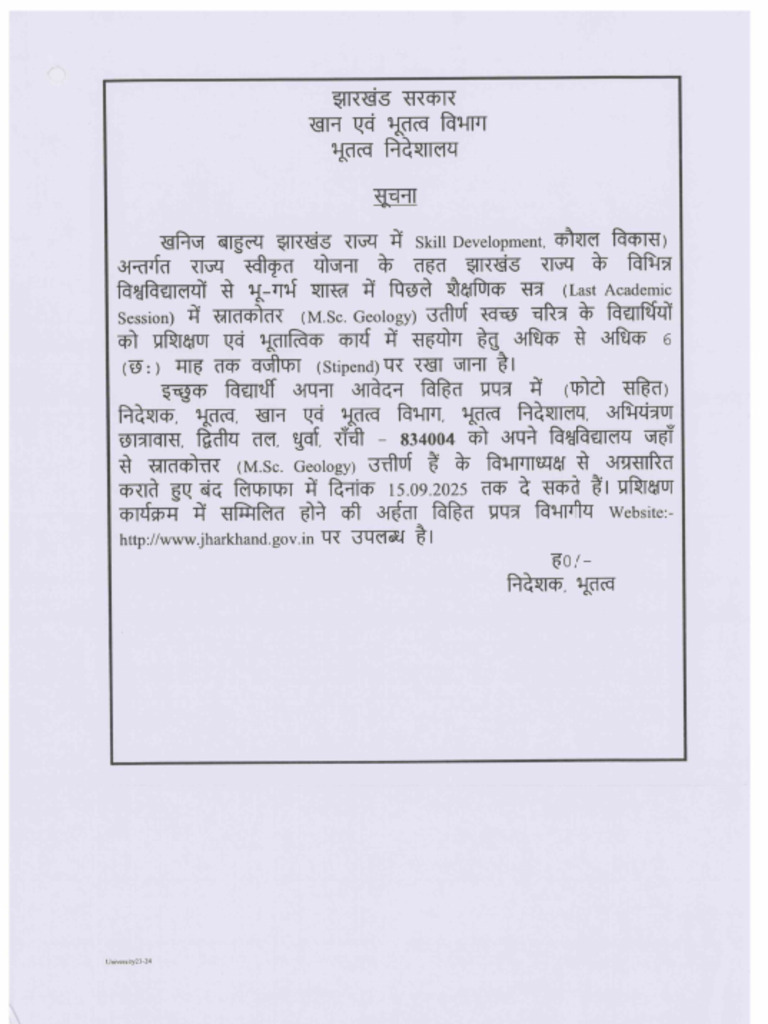 झारखंड सरकार
खान एवं भूतत्व विभाग
भूतत्व निदेशालय
सूचना
खनिज बाहुल्य झारखंड राज्य में Skill Development, कौशल विकास)
अन्तर्गत राज्य स्वीकृत योजना के तहत झारखंड राज्य के विभिन्न
विश्वविद्यालयों से भू-गर्भ शास्त्र में पिछले शैक्षणिक सत्र (Last Academic
Session) में स्नातकोतर (M.Sc. Geology) उतीर्ण स्वच्छ चरित्र के विद्यार्थियों
को प्रशिक्षण एवं भूतात्विक कार्य में सहयोग हेतु अधिक से अधिक 6
(छः) माह तक वजीफा (Stipend) पर रखा जाना है।
इच्छुक विद्यार्थी अपना आवेदन विहित प्रपत्र में (फोटो सहित)
निदेशक, भूतत्व, खान एवं भूतत्व विभाग, भूतत्व निदेशालय, अभियंत्रण
छात्रावास, द्वितीय तल, धुर्वा, राँची – 834004 को अपने विश्वविद्यालय जहाँ
से स्नातकोत्तर (M.Sc. Geology) उत्तीर्ण हैं के विभागाध्यक्ष से अग्रसारित
कराते हुए बंद लिफाफा में दिनांक 15.09.2025 तक दे सकते हैं। प्रशिक्षण
कार्यक्रम में सम्मिलित होने की अर्हता विहित प्रपत्र विभागीय Website:-
http://www.jharkhand.gov.in पर उपलब्ध है।
ह0/-
निदेशक, भूतत्व
University23-24